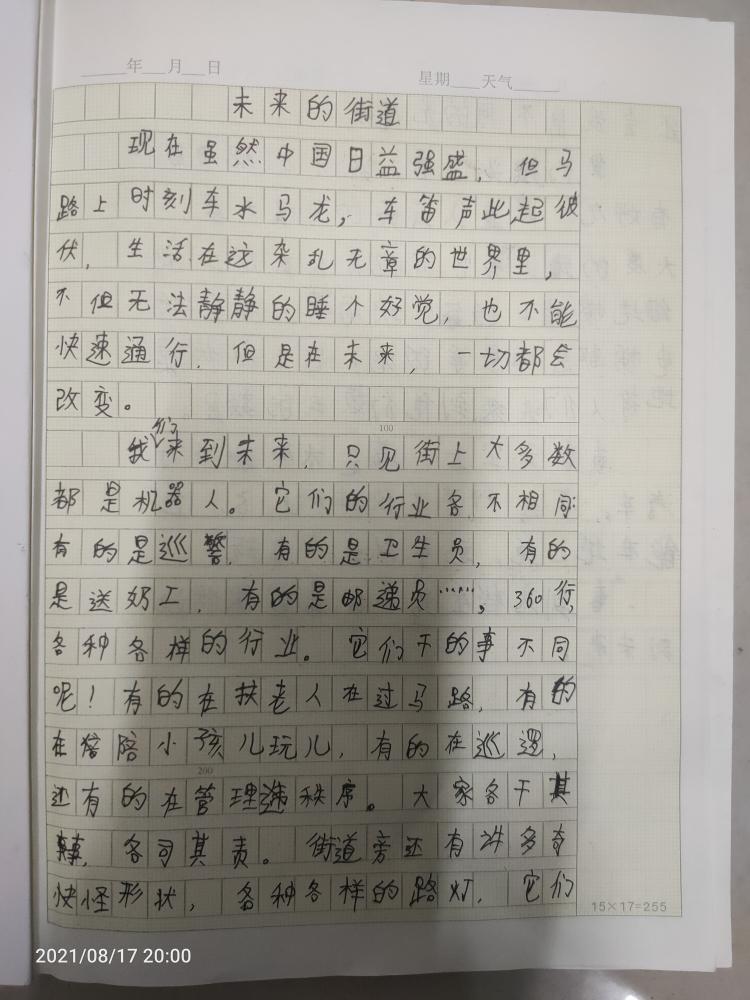 年 月 日
星期 天气
未来的街道
现在虽然中国日益强盛，但马
路上时刻车水马龙，车笛声此起彼
伏，生活在这杂乱无章的世界里，
不但无法静静的睡个好觉，也不能
快速通行，但是在未来，一切都会
改变。
100
我们来到未来，只见街上大多数
都是机器人。它们的行业各不相同，
有的是巡警，有的是卫生员，有的
是送奶工，有的是邮递员……，360行，
各种各样的行业。它们干的事不同
呢！有的在扶老人在过马路，有的
在陪小孩儿玩儿，有的在巡逻，
200
还有的在管理秩序。大家各干其
事，各司其责。街道旁还有许多奇
快怪形状，各种各样的路灯，它们
15×17=255
2021/08/17 20:00